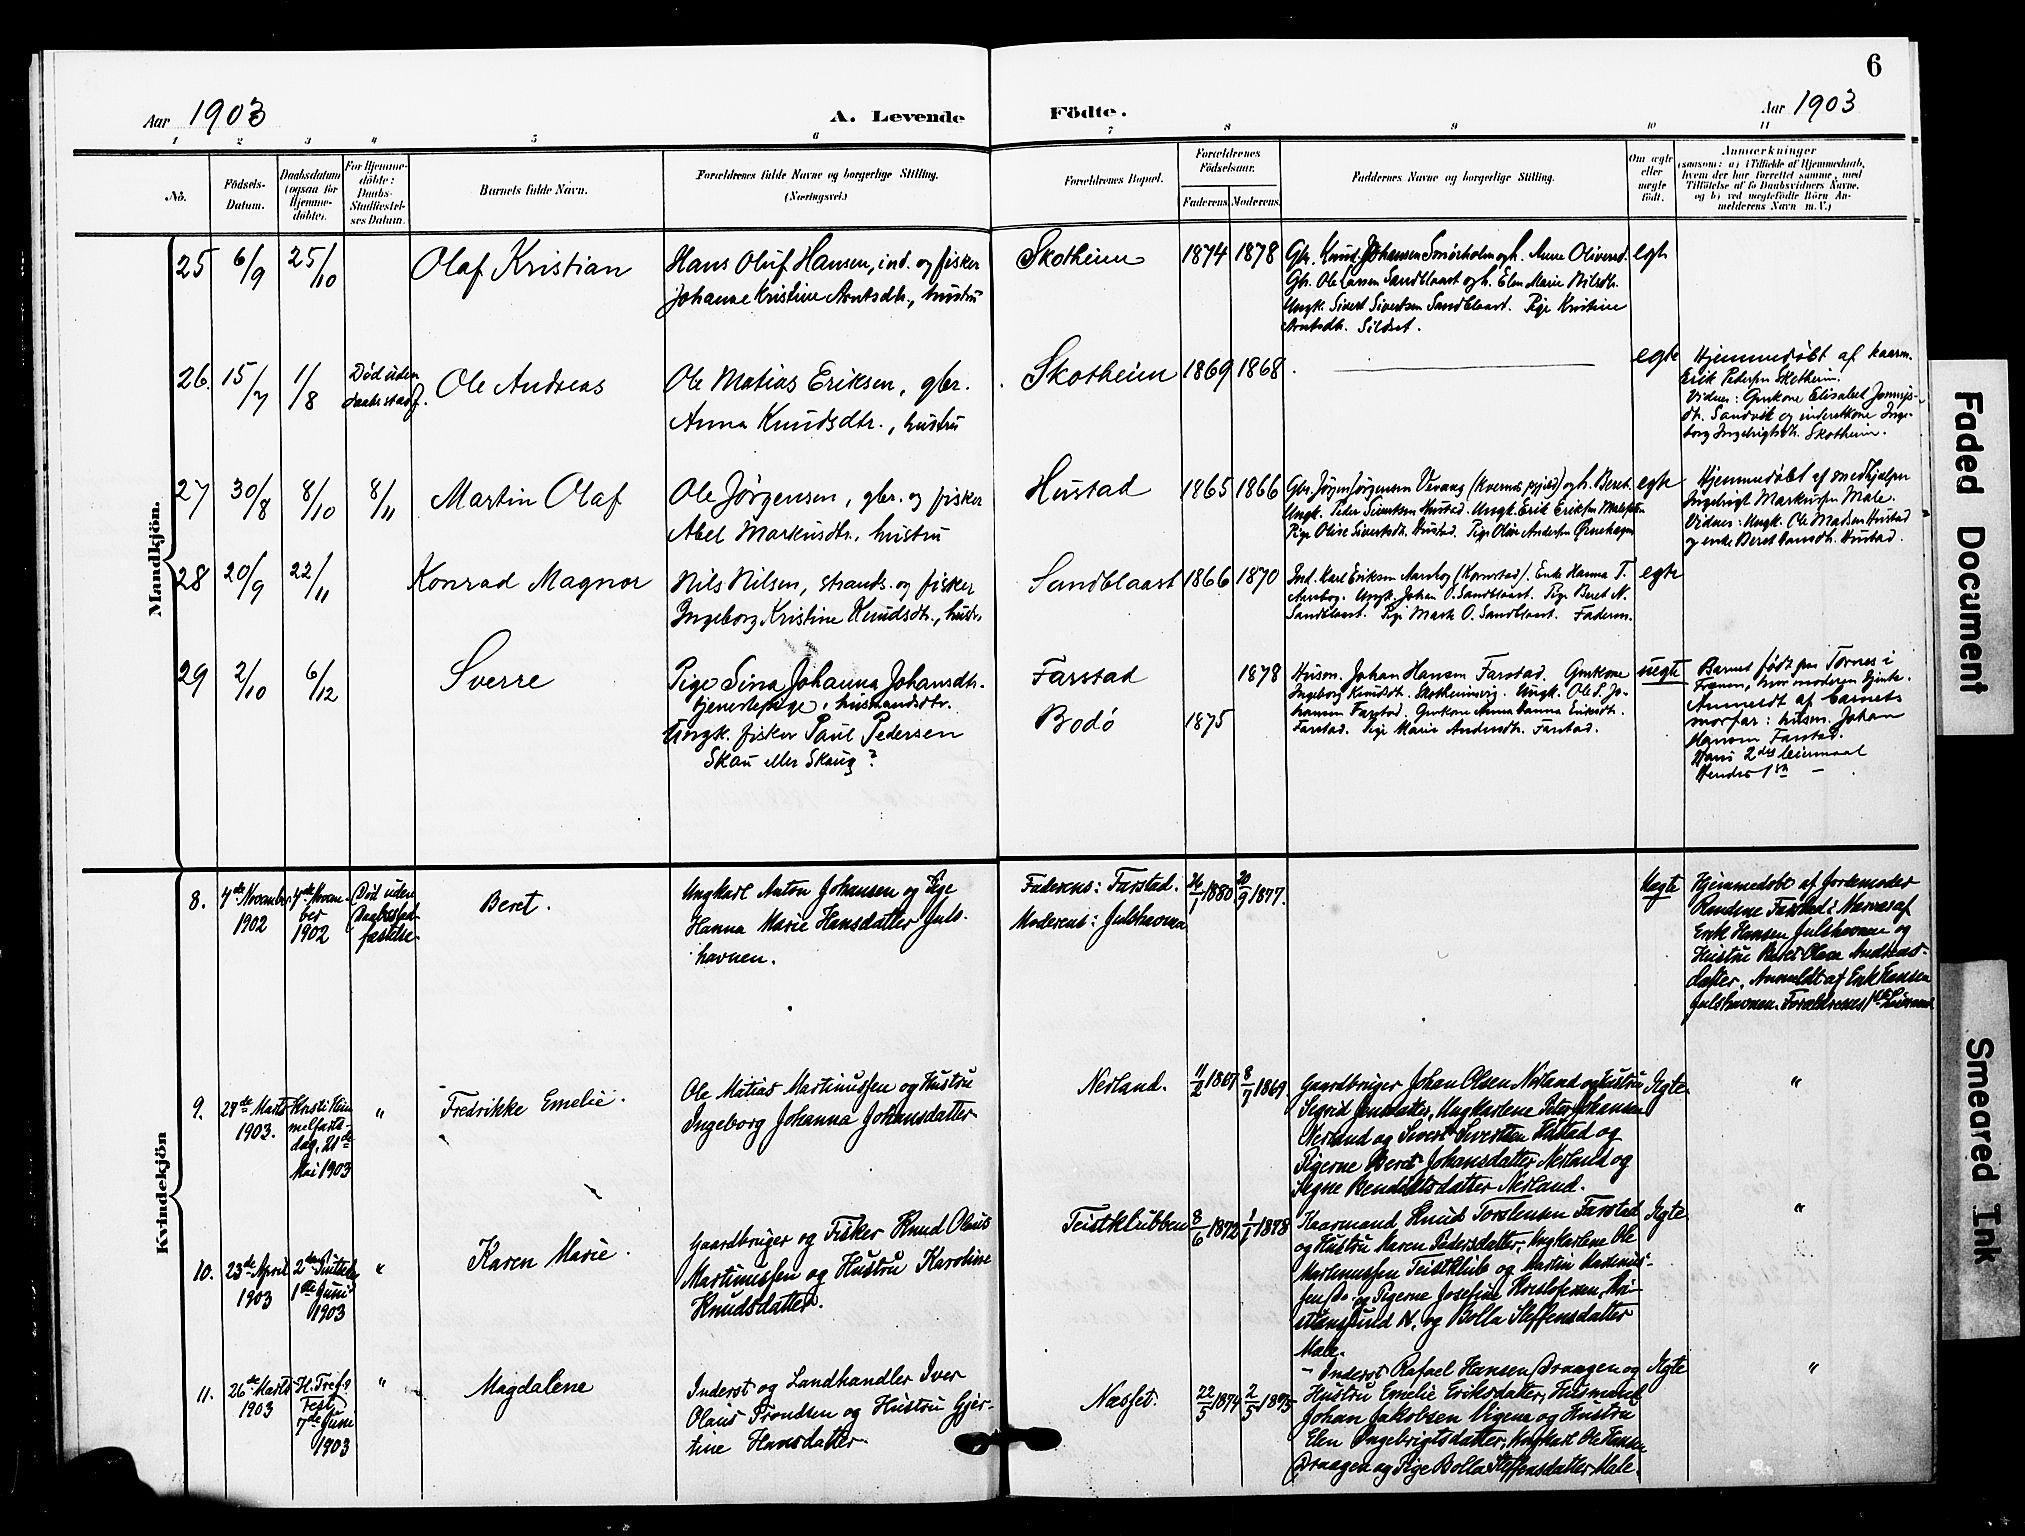 6
Aar 1903
A. Levende Födte.
Aar 1903
1 2 3 4 5 6 7 8 9 10 11
No.
Födsels-
Datum.
Daabsdatum
(ogsaa for
Hjemme-
døbte).
For Hjemme-
döbte:
Daabs-
Stadfæstel-
ses Datum.
Barnets fulde Navn.
Forældrenes fulde Navne og borgerlige Stilling.
(Næringsvei.)
Forældrenes Bopæl.
Forældrenes
Födselsaar.
Faderens. Moderens.
Faddernes Navne og borgerlige Stilling.
Om ægte
eller
uægte
födt.
Anmærkninger
(saasom: a) i Tilfælde af Hjemmedaab,
hvem der har forrettet samme, med
Tilföielse af to Daabsvidners Navne,
og b) ved uægtefödte Börn An-
melderens Navn m. V.)
Mandkjön.
25 6/9 25/10 Olaf Kristian
Hans Oluf Hansen, ind. og fisker
Johanne Kristine Arntsdtr., hustru
Skotheim 1874 1878
Gbr. Knud Johansen Smørholm og h. Anne Oliversd.
Gbr. Ole Larsen Sandblaast og h. Elen Marie Nilsdtr.
Ungk. Sivert Sivertsen Sandblaast. Pige Kristine
Arntsdtr. Sildset.
egte
26. 15/7 1/8 Død uden
daabsstadf.
Ole Andreas
Ole Matias Eriksen, gbr.
Anna Knudsdtr., hustru
Skotheim 1869 1868
egte
Hjemmedøbt af kaarm.
Erik Pedersen Skotheim.
Vidner: Gmkone Elisabet
dtr. Sandvik og inderstkone Inge-
borg Ingebrigtsdtr. Skotheim.
27 30/8 8/10 8/11 Martin Olaf
Ole Jörgensen, gbr. og fisker
Abel Markusdtr., hustru
Hustad 1865 1866
Gbr. Jörgen Jörgensen Vevang (Kvernes prgjeld) og h. Beret
Ungk. Peder Sivertsen Hustad. Ungk. Erik Eriksen
Pige Oline Sivertsdtr. Hustad. Pige Oline Andersen
egte
Hjemmedøbt af medhjælper
Ingebrigt Markussen Male.
Vidner: Ungk. Ole Madsen Hustad
og enke Beret Hansdtr. Hustad.
28 20/9 22/11 Konrad Magnor
Nils Nilsen, strands. og fisker
Ingeborg Kristine Knudsdtr., hustr.
Sandblaast 1866 1870
Ind. Karl Eriksen Aarsbog (Kornstad). Enke Hanna T.
Aarsbog. Ungk. Johan O. Sandblaast. Pige Beret N.
Sandblaast. Pige Marta O. Sandblaast. Faderen.
egte
29 2/10 6/12 Sverre
Pige Sina Johanna Johansdtr.
tjenestepige, husmandsdtr.
Ungk. fisker Paul Pedersen
Skau eller Skaug?
Farstad 1878
Bodö 1875
Husm. Johan Hansen Farstad. Gmkone
Ingeborg Knudsdtr. Skotheimsvig. Ungk. Ole S. Jo-
hansen Farstad. Gmkone Anna Hanna Eriksdtr.
Farstad. Pige Marie Andersdtr. Farstad.
uegte
Barnet født paa Tornes i
Frænen, hvor moderen tjente.
Anmeldt af barnets
morfar: husm. Johan
Hansen Farstad.
Hans 2det leiermaal
Hendes 1ste —
Kvindekjön
8. 7de November
1902
7de Novem-
ber
1902
Død uden
Daabsstad-
fæstelse
Beret.
Ungkarl Anton Johansen og Pige
Hanna Marie Hansdatter Juls-
havnen.
Faderens: Farstad.
Moderens: Julshavnen
26/1 1880. 20/9 1877.
Uegte
Hjemmedøbt af Jordemoder
Rendene Farstad i Nærvær af
Erik Hansen Julshavnen og
Hustru Beret Olave Andreas-
datter. Anmeldt af Erik Hansen
Julshavnen. Forældrenes 1ste Leiermaal
9. 29de Marts
1903.
Kristi Him-
melfarts-
dag, 21de
Mai 1903
"
Fredrikke Emelie.
Ole Matias Martinussen og Hustru
Ingeborg Johanna Johansdatter
Nerland. 11/2 1867 8/7 1869
Gaardbruger Johan Olsen Nerland og Hustru
Sigrid Jensdatter, Ungkarlene Peter Johansen
Nerland og Sivert Sivertsen Hustad og
Pigerne Beret Johansdatter Nerland og
Signe Bendiktsdatter Nerland.
Egte
"
10. 23de April
1903
2den Pintsedag
1ste Juni
1903
"
Karen Marie.
Gaardbruger og Fisker Knud Olaus
Martinussen og Hustru Karoline
Knudsdatter.
Teistklubben 8/6 1872 1/1 1878
Kaarmand Knud Torstensen Farstad
og Hustru Maren Pedersdatter, Ungkarlene Ole
Martinussen Teistklub og Martin Martinus-
sen do. og Pigerne Josefine Kristofersen, Kri-
stiansund N. og Bolla Steffensdatter
Male.
Egte
"
11. 26de Marts
1903
H. Tref.s
Fest
7de Juni
1903
"
Magdalene
Inderst og Landhandler Iver
Olaus Trondsen og Hustru Gjer-
tine Hansdatter.
Næsset. 22/5 1874 2/5 1875
- Inderst Rafael Hansen Draagen og
Hustru Emelie Eriksdatter, Husmand
Johan Jakobsen Vigene og Hustru
Elen Ingebrigtsdatter, Ungkarl Ole Hansen
Draagen og Pige Bolla Steffensdatter Male.
Egte
"
Faded Document
Smeared Ink